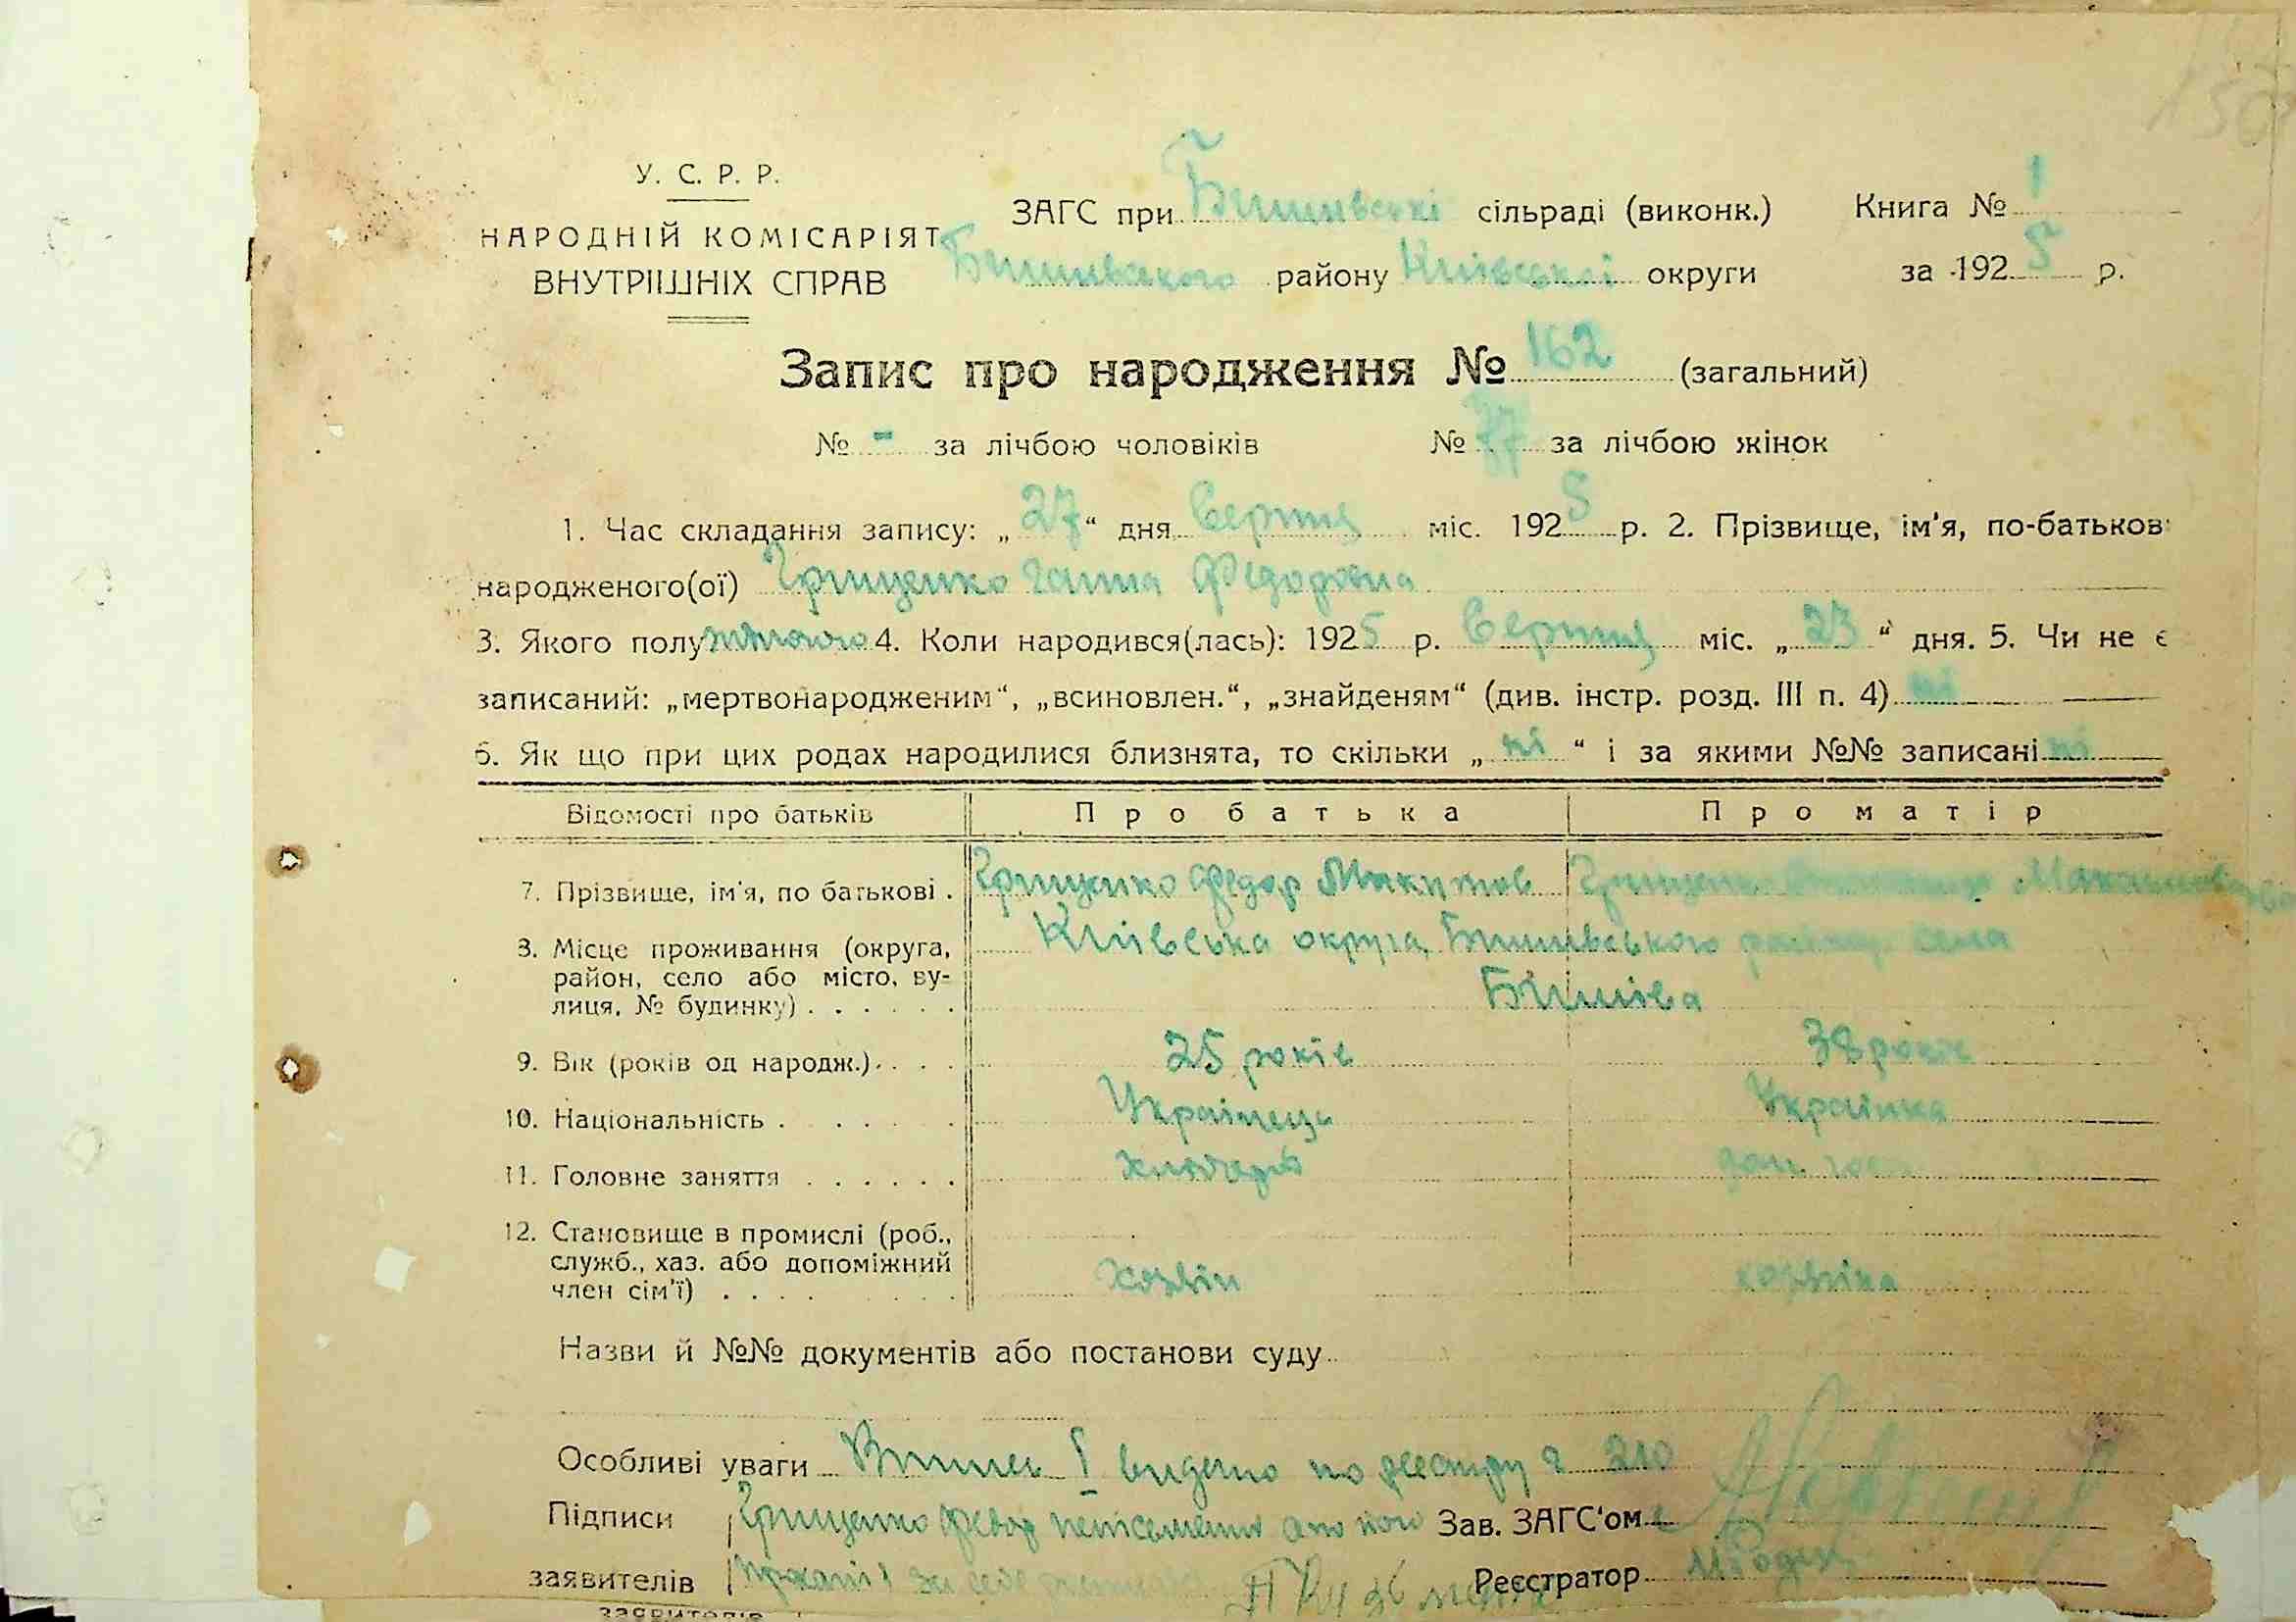 У. С. Р. Р.
НАРОДНІЙ КОМІСАРІЯТ
ВНУТРІШНІХ СПРАВ
ЗАГС при Бишивській сільраді (виконк.) Книга № 1
Бишивського району Київської округи за 1925 р.
Запис про народження № 162 (загальний)
№ - за лічбою чоловіків № 77 за лічбою жінок
1. Час складання запису: „27“ дня Серпня міс. 1925 р. 2. Прізвище, ім'я, по-батькові
народженого(ої) Грищенко Ганна Федоровна
3. Якого полу жіночого 4. Коли народився(лась): 1925 р. Серпня міс. „23“ дня. 5. Чи не є
записаний: „мертвонародженим“, „всиновлен.“, „знайденям“ (див. інстр. розд. III п. 4) ні
6. Як що при цих родах народилися близнята, то скільки „ні“ і за якими №№ записані ні
Відомості про батьків Про батька Про матір
7. Прізвище, ім'я, по батькові . Грищенко Федор Микитов Грищенко
8. Місце проживання (округа, район, село або місто, вулиця, № будинку) . . . . . . Київська округа, Бишивського району села
Бишіва
9. Вік (років од народж.) . . . 25 років 38 років
10. Національність . . . . . Українець Українка
11. Головне заняття . . . . . . хлібороб дом. госп
12. Становище в промислі (роб., служб., хаз. або допоміжний член сім'ї) . . . . хозяін хозяіка
Назви й №№ документів або постанови суду
Особливі уваги Випись I видано по реєстру № 210
Підписи Грищенко Федор неписьменний а по його Зав. ЗАГС'ом
заявителів Реєстратор
заявителів